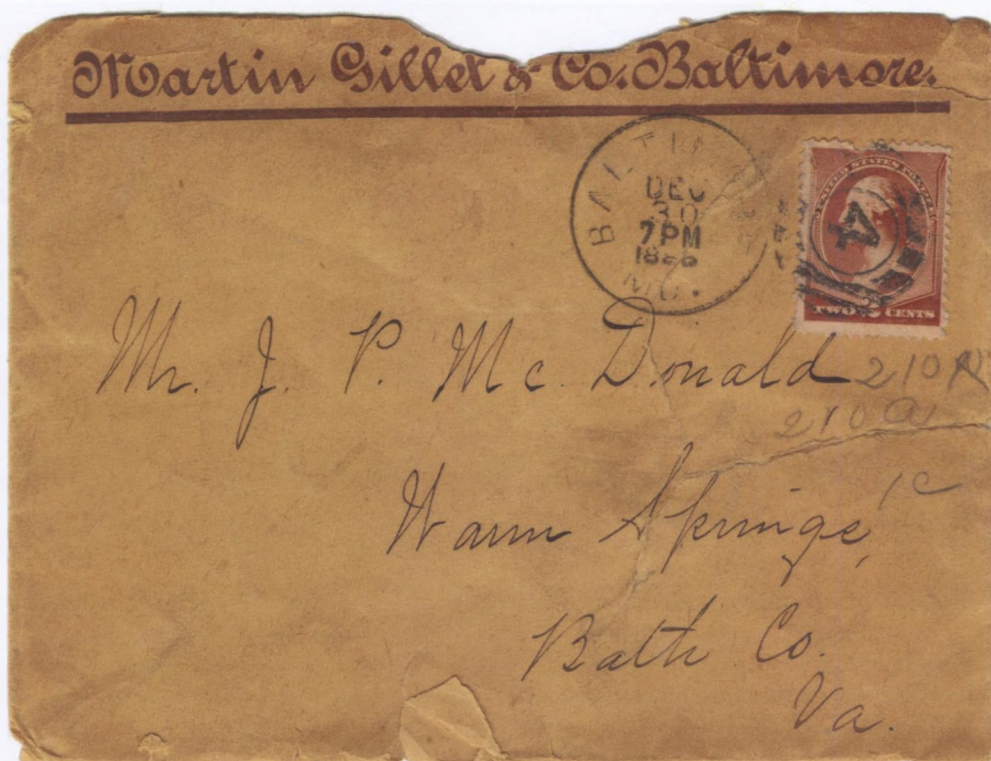 Martin Gillet & Co. Baltimore.
BALTIMORE
DEC
30
7 PM
MD.
UNITED STATES POSTAGE
4
TWO 2 CENTS
Mr. J. P. Mc. Donald
210
210
Warm Springs,
Bath Co.
Va.